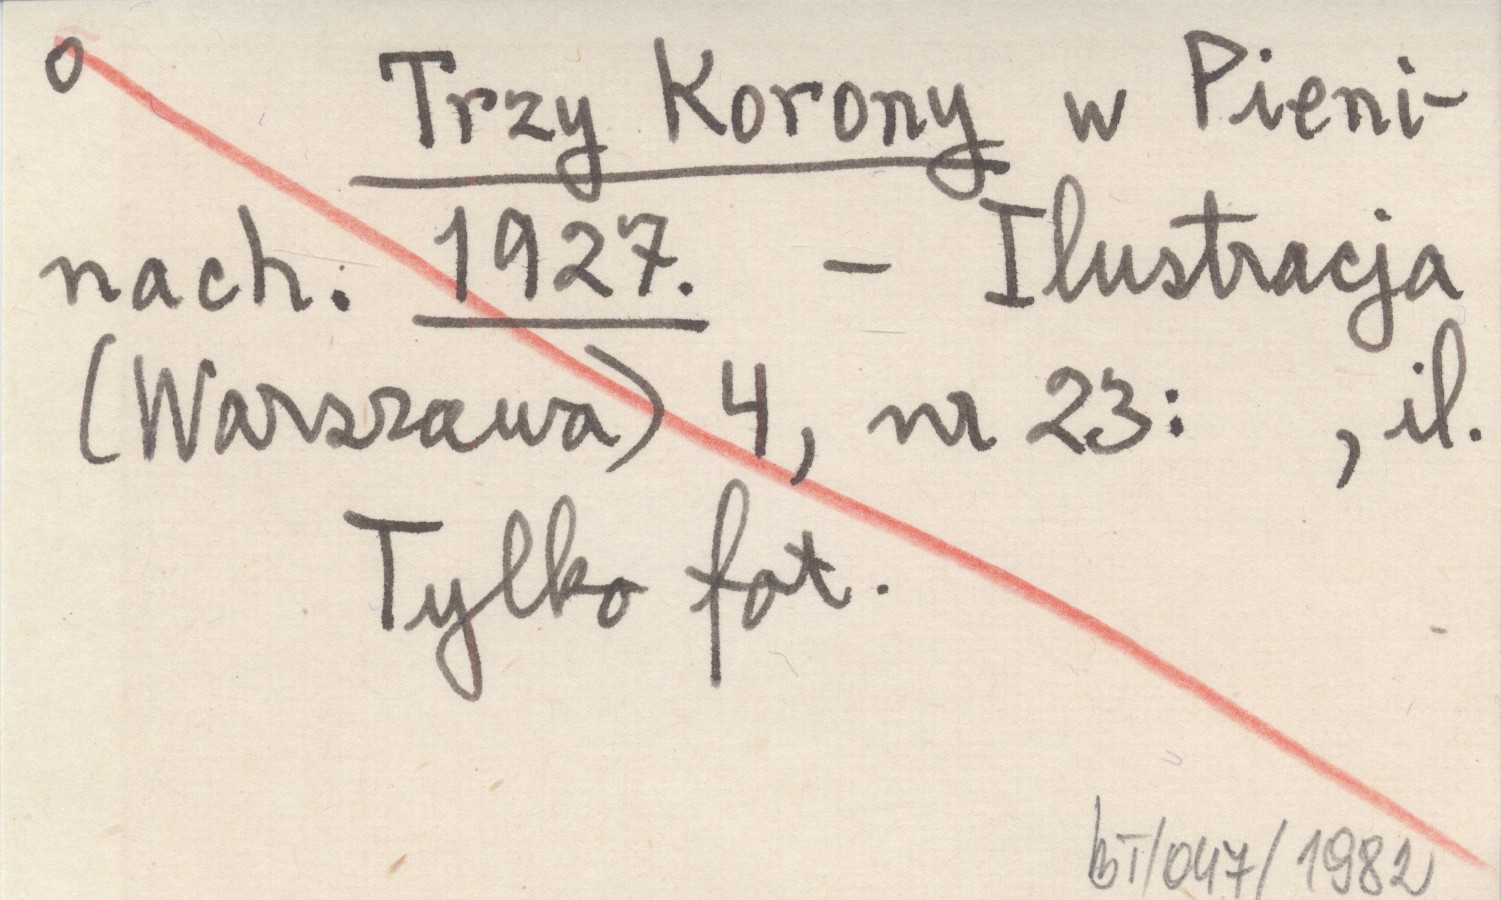 o Trzy Korony w Pieni-
nach. 1927. – Ilustracja
(Warszawa) 4, nr 23: , il.
Tylko fot.
/047/1982